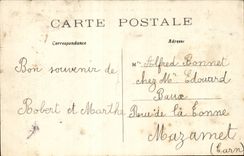 CARTE POSTALE
Correspondance
Adresse
Bon souvenir de
Robert et Marthe
Mr Alfred Bonnet
chez Mr Edouard
Baux
Rue de la Tonne
Mazamet
(Tarn)